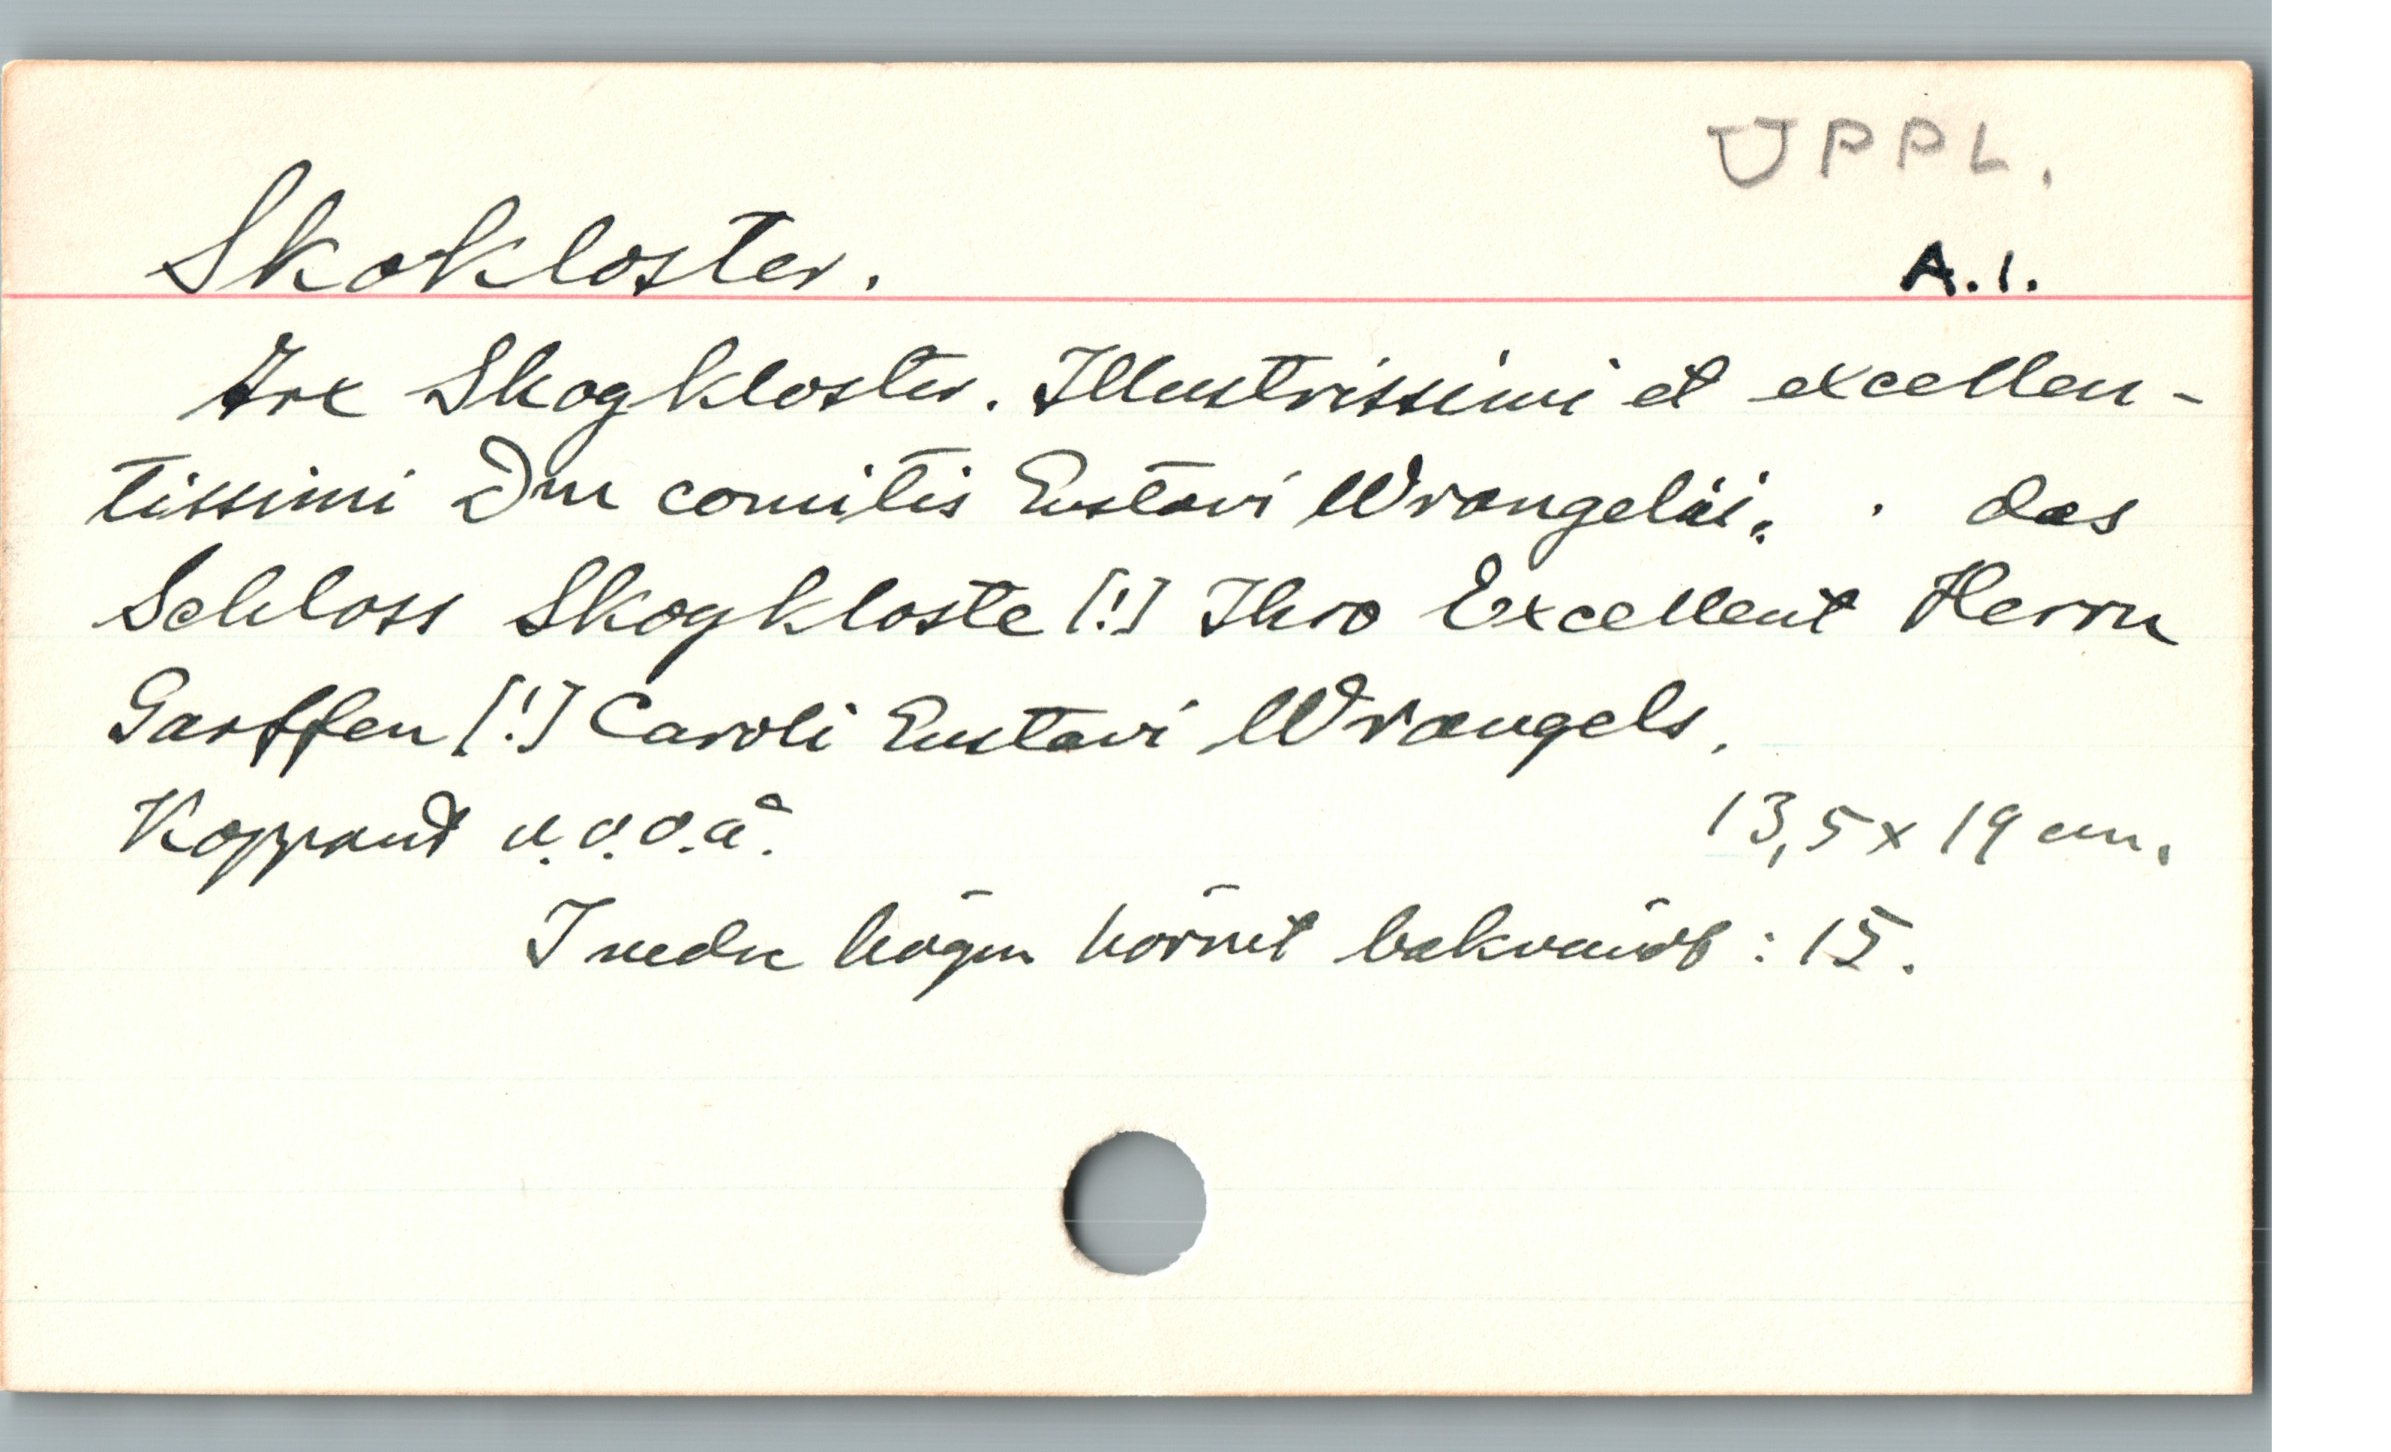 UPPL.
Skokloster.
A.1.
Arx Skogkloster. Illustrissimi et excellen-
tissimi Dm comitis Gustavi Wrangelii. . das
Schloss Skogkloste [!] Ihro Excellent Herrn
Garffen [!] Caroli Gustavi Wrangels.
Kopparst u.o.o.å.
13,5 x 19 cm.
I nedre högra hörnet bakvänt: 15.